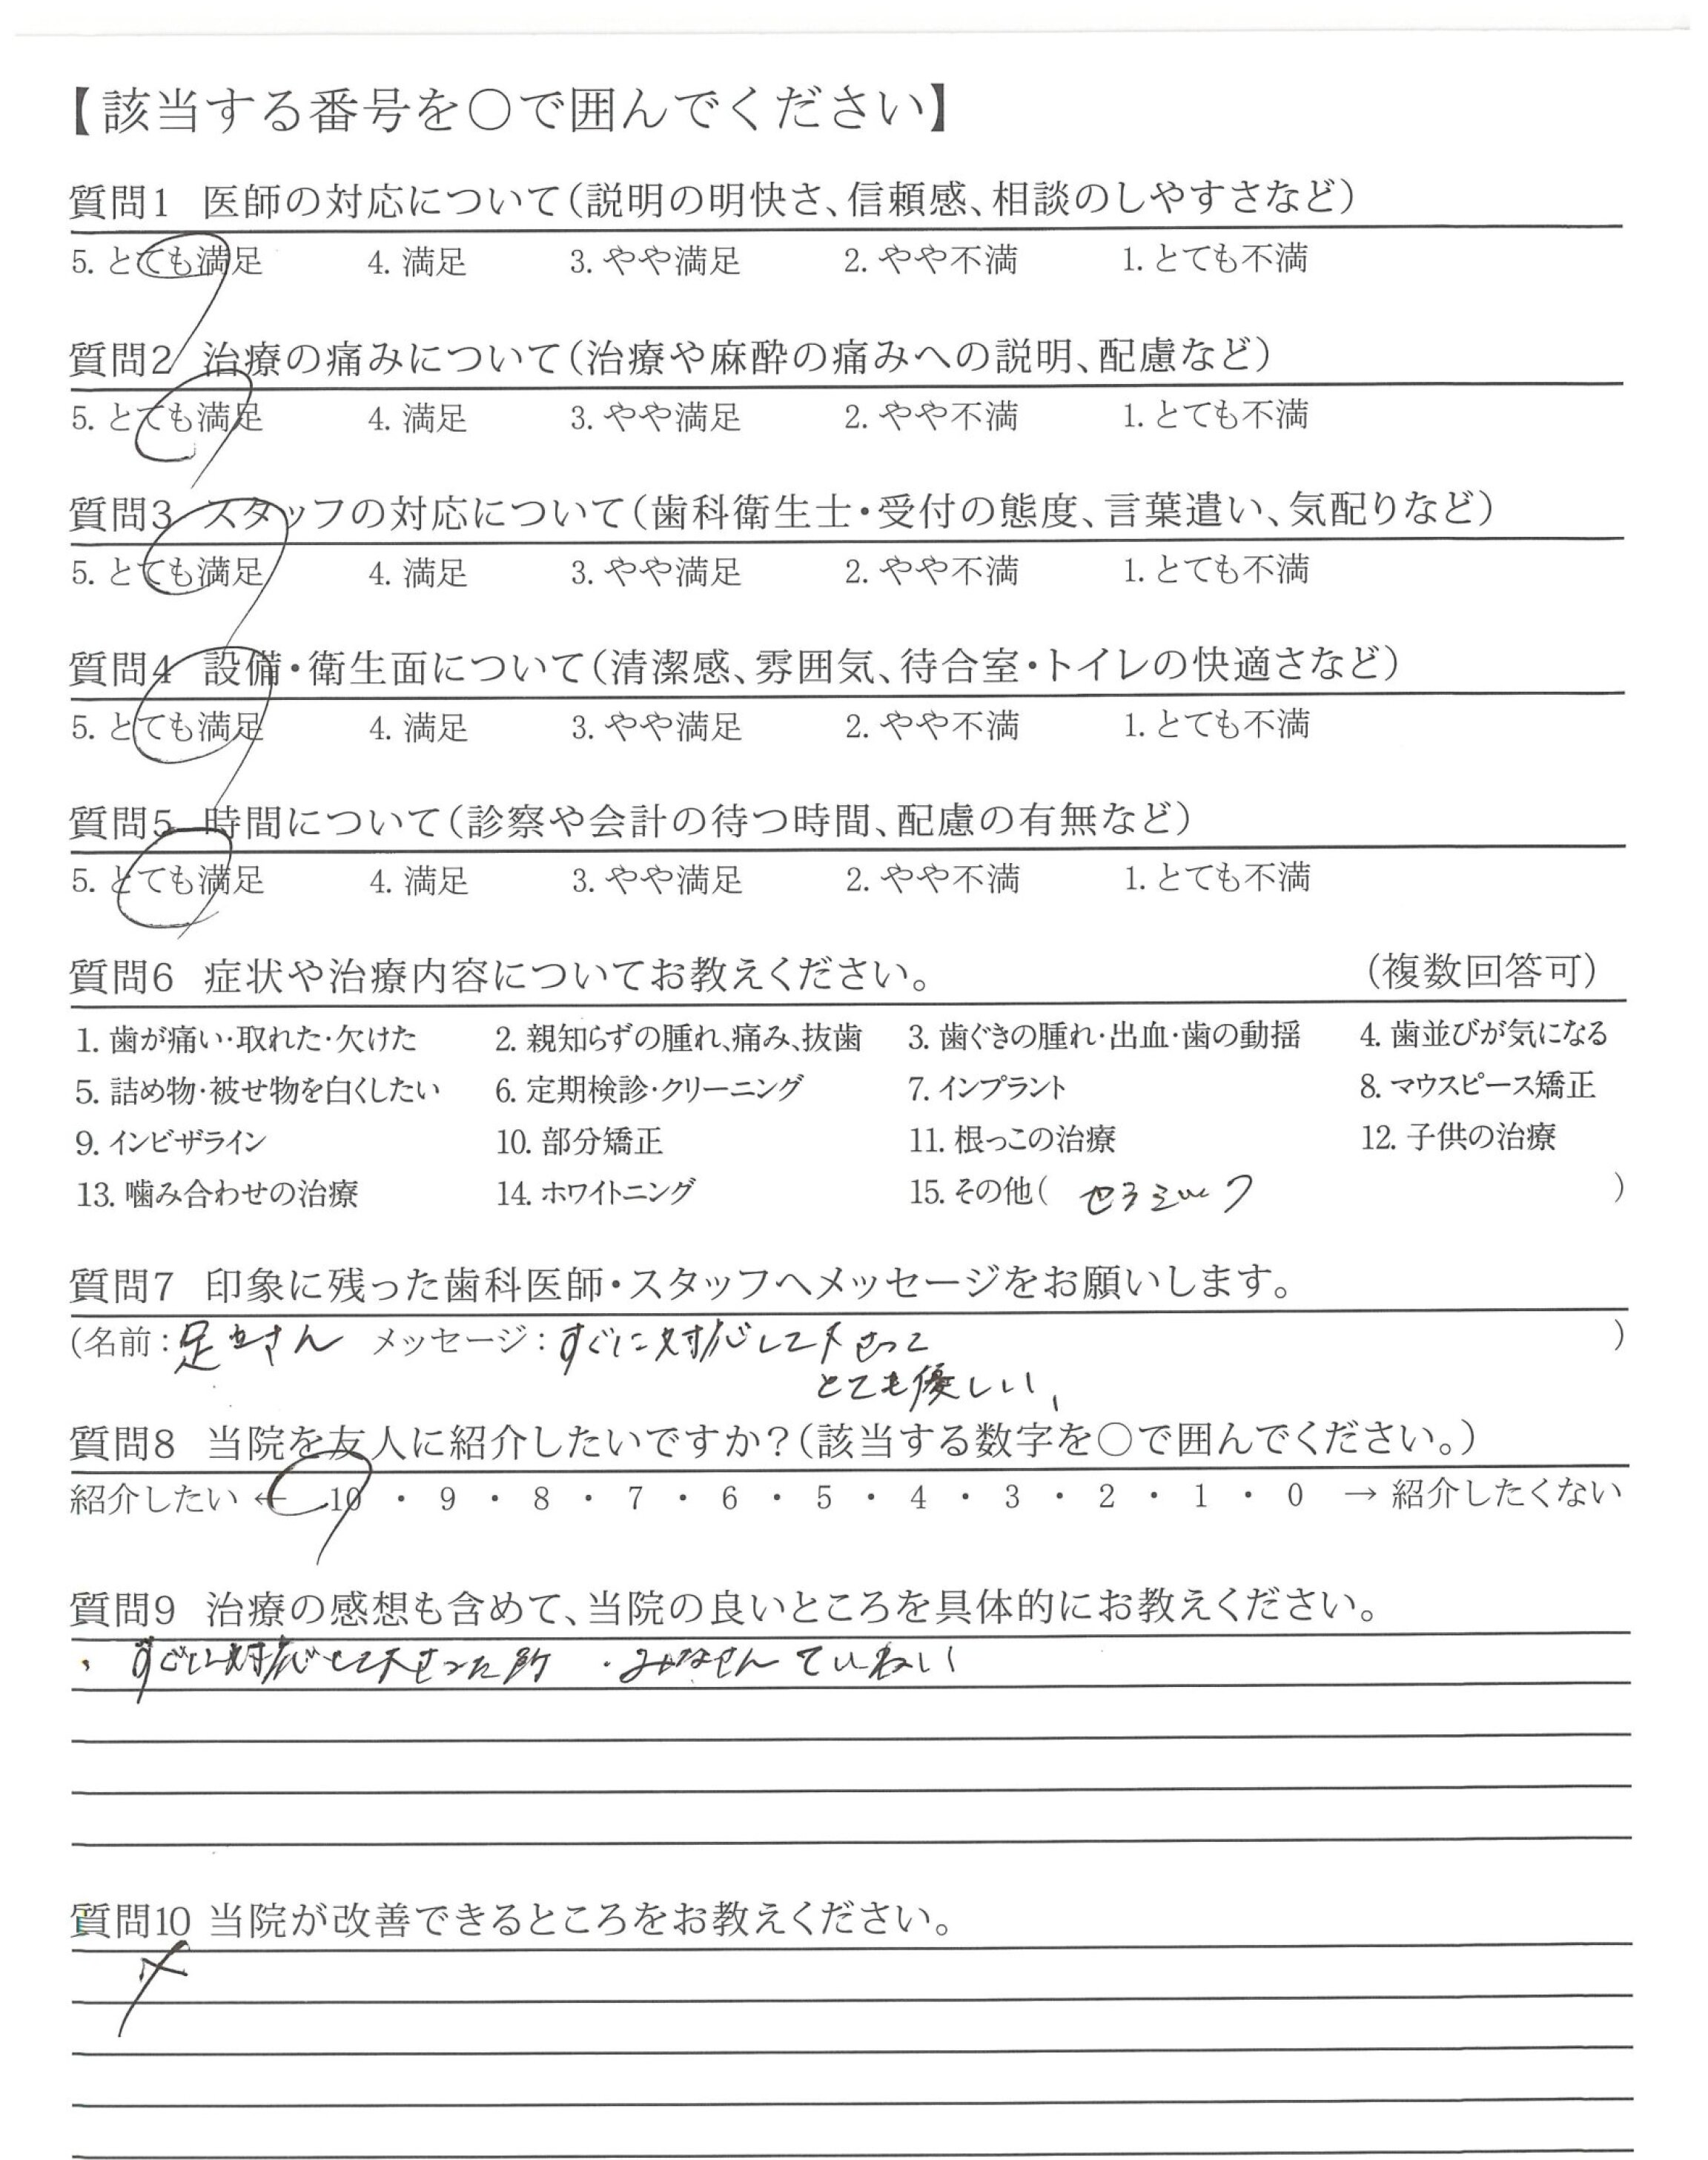 【該当する番号を○で囲んでください】
質問1 医師の対応について(説明の明快さ、信頼感、相談のしやすさなど)
5. とても満足 4. 満足 3. やや満足 2. やや不満 1. とても不満
質問2 治療の痛みについて(治療や麻酔の痛みへの説明、配慮など)
5. とても満足 4. 満足 3. やや満足 2. やや不満 1. とても不満
質問3 スタッフの対応について(歯科衛生士・受付の態度、言葉遣い、気配りなど)
5. とても満足 4. 満足 3. やや満足 2. やや不満 1. とても不満
質問4 設備・衛生面について(清潔感、雰囲気、待合室・トイレの快適さなど)
5. とても満足 4. 満足 3. やや満足 2. やや不満 1. とても不満
質問5 時間について(診察や会計の待つ時間、配慮の有無など)
5. とても満足 4. 満足 3. やや満足 2. やや不満 1. とても不満
質問6 症状や治療内容についてお教えください。 (複数回答可)
1. 歯が痛い・取れた・欠けた 2. 親知らずの腫れ、痛み、抜歯 3. 歯ぐきの腫れ・出血・歯の動揺 4. 歯並びが気になる
5. 詰め物・被せ物を白くしたい 6. 定期検診・クリーニング 7. インプラント 8. マウスピース矯正
9. インビザライン 10. 部分矯正 11. 根っこの治療 12. 子供の治療
13. 噛み合わせの治療 14. ホワイトニング 15. その他( セラミック )
質問7 印象に残った歯科医師・スタッフへメッセージをお願いします。
(名前：足立さん メッセージ：すぐに対応して下さって )
とても優しい、
質問8 当院を友人に紹介したいですか？(該当する数字を○で囲んでください。)
紹介したい ← 10 ・ 9 ・ 8 ・ 7 ・ 6 ・ 5 ・ 4 ・ 3 ・ 2 ・ 1 ・ 0 → 紹介したくない
質問9 治療の感想も含めて、当院の良いところを具体的にお教えください。
・すぐに対応して下さった所 ・みなさんていねい
質問10 当院が改善できるところをお教えください。